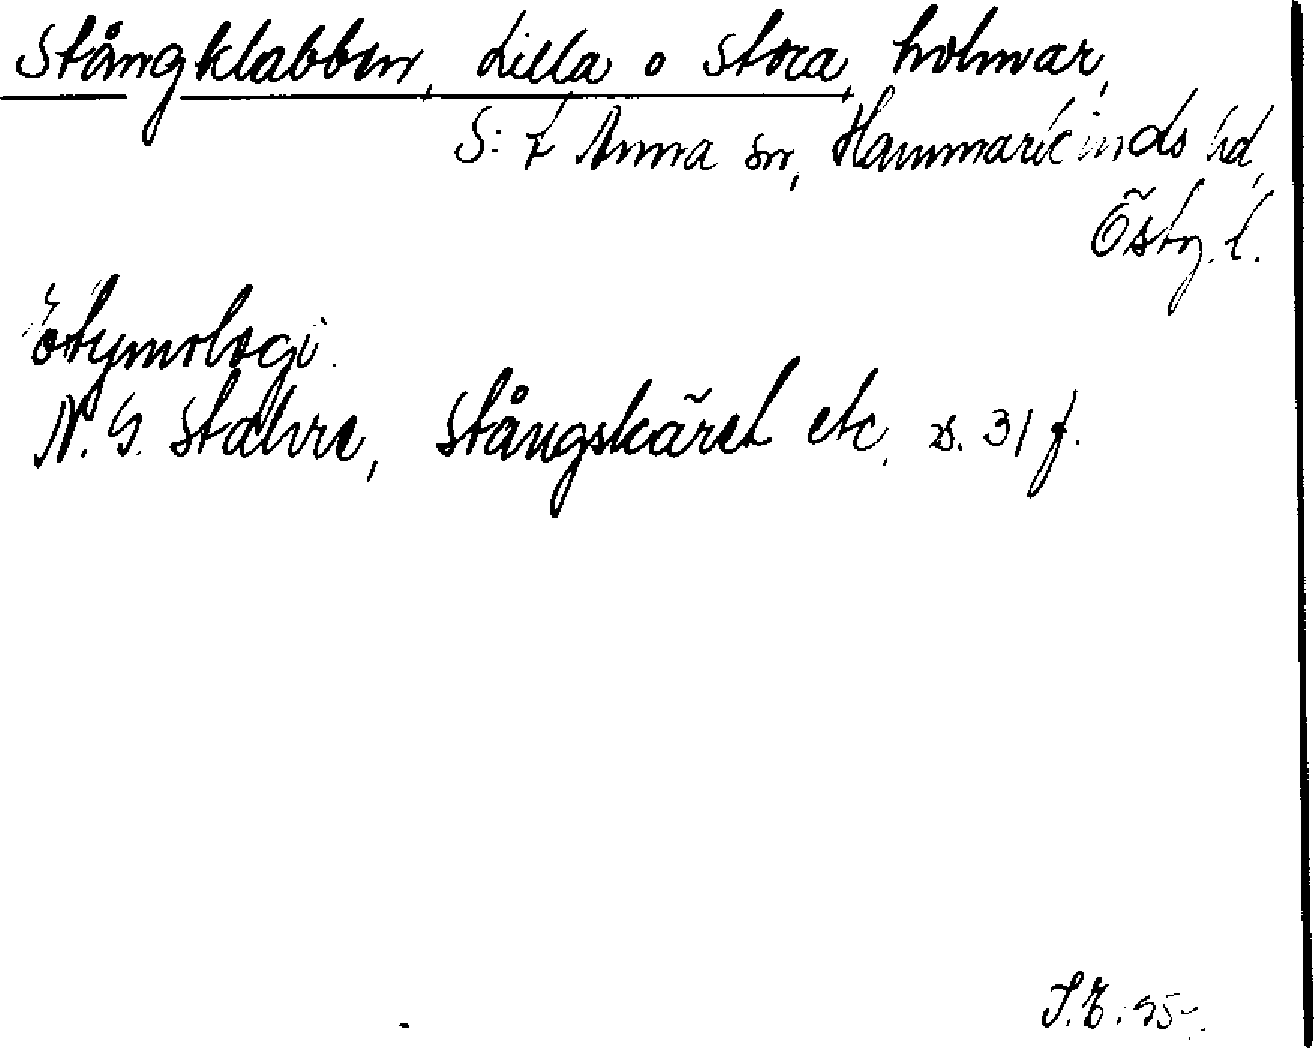 Stångklabben, Lilla o Stora, holmar,
S:t Anna sn, Hammarkinds hd,
Östg.l.
Etymologi.
N. G. Stahre, Stångskäret etc. s. 31 f.
S.E.